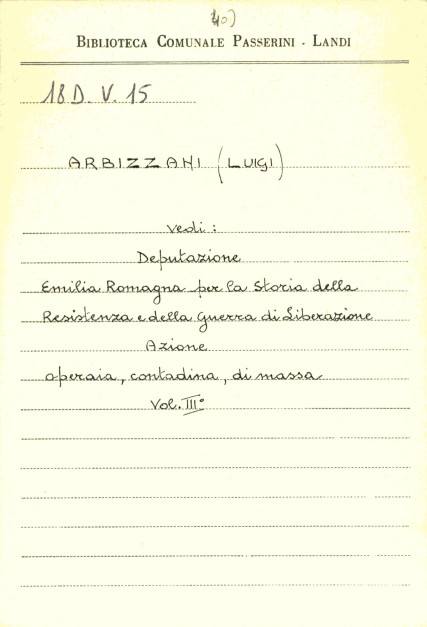 40)
BIBLIOTECA COMUNALE PASSERINI - LANDI
18 D. V. 15
ARBIZZANI (LUIGI)
Vedi:
Deputazione
Emilia Romagna per la Storia della
Resistenza e della Guerra di Liberazione
Azione
operaia, contadina, di massa
Vol. III°